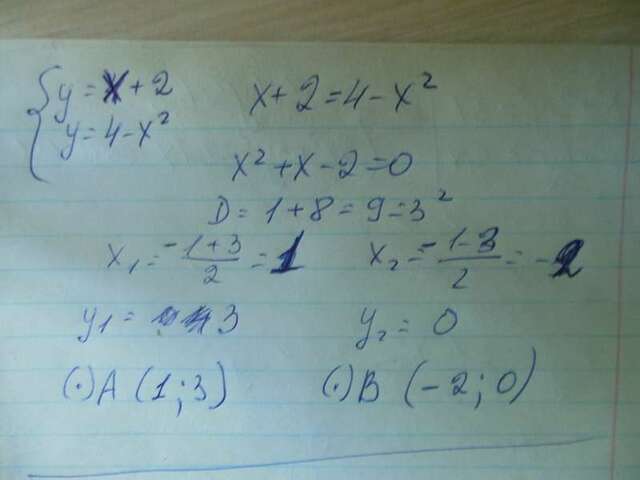 { y = x + 2
y = 4 - x²
x + 2 = 4 - x²
x² + x - 2 = 0
D = 1 + 8 = 9 = 3²
x₁ = (-1 + 3)/2 = 1 x₂ = (-1 - 3)/2 = -2
y₁ = 3 y₂ = 0
(·) A (1; 3) (·) B (-2; 0)